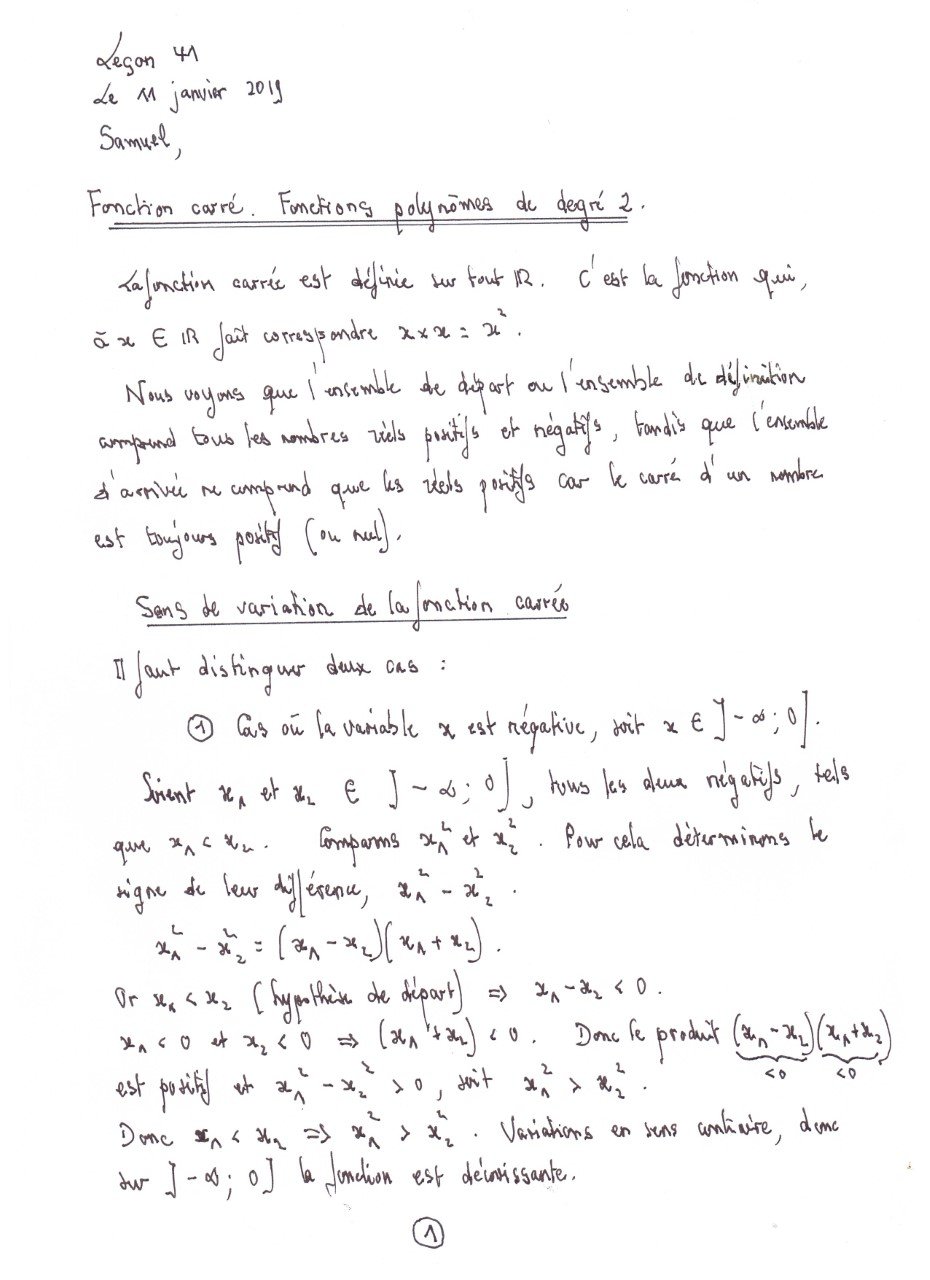 Leçon 41
Le 11 janvier 2019
Samuel,
Fonction carré. Fonctions polynômes de degré 2.
La fonction carrée est définie sur tout ℝ. C'est la fonction qui,
à x ∈ ℝ fait correspondre x × x = x².
Nous voyons que l'ensemble de départ ou l'ensemble de définition
comprend tous les nombres réels positifs et négatifs, tandis que l'ensemble
d'arrivée ne comprend que les réels positifs car le carré d'un nombre
est toujours positif (ou nul).
Sens de variation de la fonction carrée
Il faut distinguer deux cas :
① Cas où la variable x est négative, soit x ∈ ]-∞; 0].
Soient x₁ et x₂ ∈ ]-∞; 0], tous les deux négatifs, tels
que x₁ < x₂. Comparons x₁² et x₂². Pour cela déterminons le
signe de leur différence, x₁² - x₂².
x₁² - x₂² = (x₁ - x₂)(x₁ + x₂).
Or x₁ < x₂ (hypothèse de départ) ⇒ x₁ - x₂ < 0.
x₁ < 0 et x₂ < 0 ⇒ (x₁ + x₂) < 0. Donc le produit (x₁ - x₂)(x₁ + x₂)
<0 <0
est positif et x₁² - x₂² > 0, soit x₁² > x₂².
Donc x₁ < x₂ ⇒ x₁² > x₂². Variations en sens contraire, donc
sur ]-∞; 0] la fonction est décroissante.
①